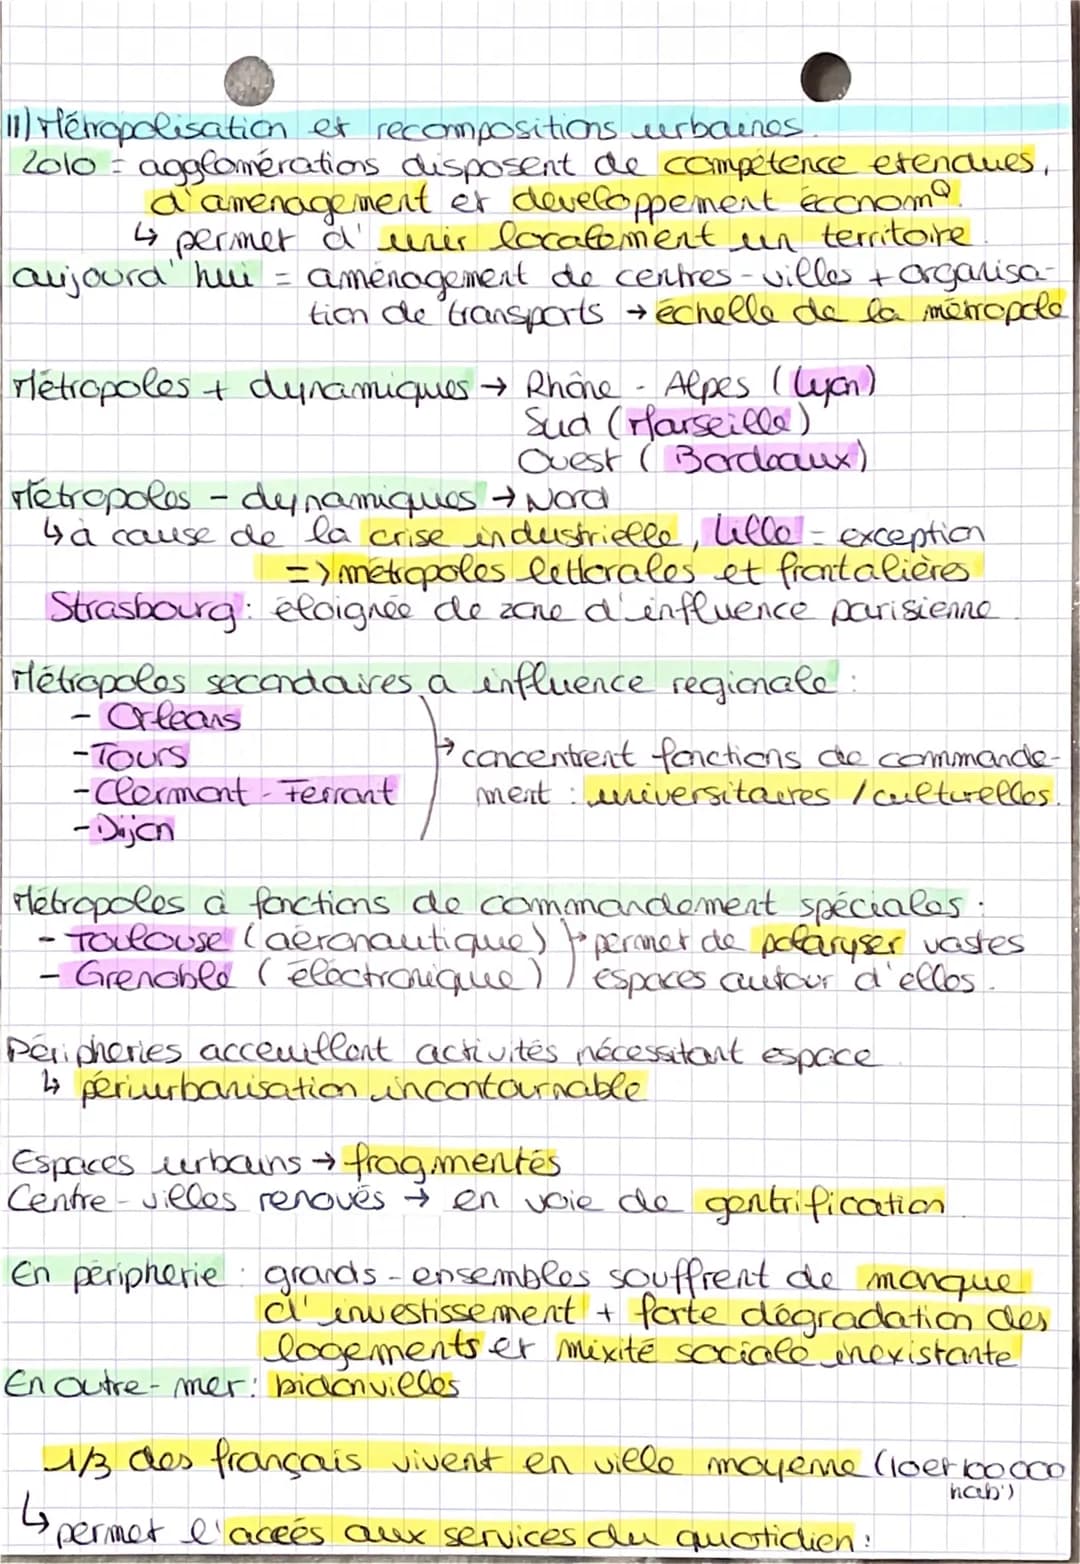 II) Métropolisation et recompositions urbaines.
2010 = agglomérations disposent de compétence etendues,
d'aménagement et developpement économQ.
↳ permet d'unir localement un territoire.
aujourd'hui = aménagement de centres-villes + organisa-
tion de transports → échelle de la métropole
Métropoles + dynamiques → Rhône - Alpes (Lyon)
Sud (Marseille)
Ouest (Bordeaux)
Métropoles - dynamiques → Nord
↳ à cause de la crise industrielle, Lille = exception
=> métropoles littorales et frontalières
Strasbourg : éloignée de zone d'influence parisienne.
Métropoles secondaires a influence regionale :
- Orleans
- Tours
- Clermont - Ferrant
- Dijon
→ concentrent fonctions de commande-
ment : universitaires / culturelles.
Métropoles à fonctions de commandement spéciales :
- Toulouse (aéronautique) → permet de polaryser vastes
- Grenoble (électronique) espaces autour d'elles.
Péripheries acceuillent activités nécessitant espace.
↳ périurbanisation incontournable
Espaces urbains → fragmentés
Centre - villes renovés → en voie de gentrification.
En péripherie : grands - ensembles souffrent de manque
d'investissement + forte dégradation des
logements et mixité sociale inexistante
En outre - mer : bidonvilles
1/3 des français vivent en ville moyenne (10 et 100 000
hab')
↳ permet l'accés aux services du quotidien :